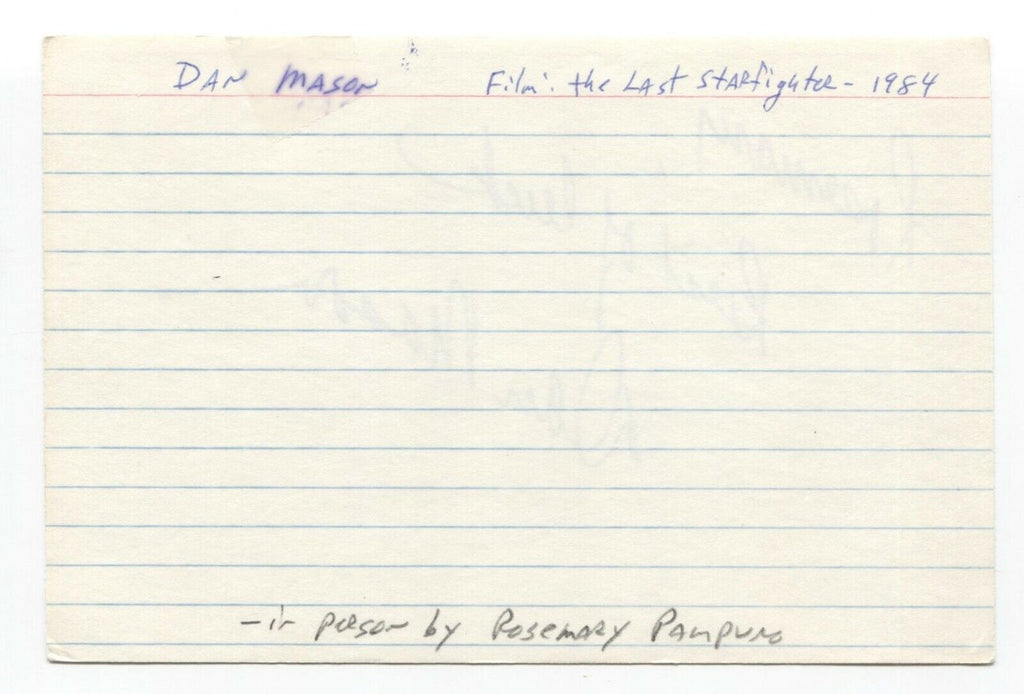 DAN MASON Film: the LAst STARfighter - 1984
- in person by Rosemary